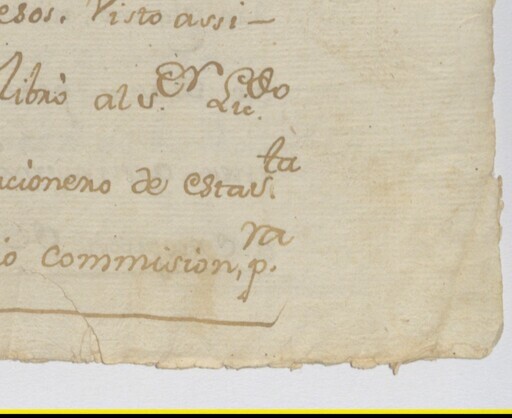 esos. Visto assi-
libro al s.or Lic.do
acionero de esta s.ta
io commision, p.ra